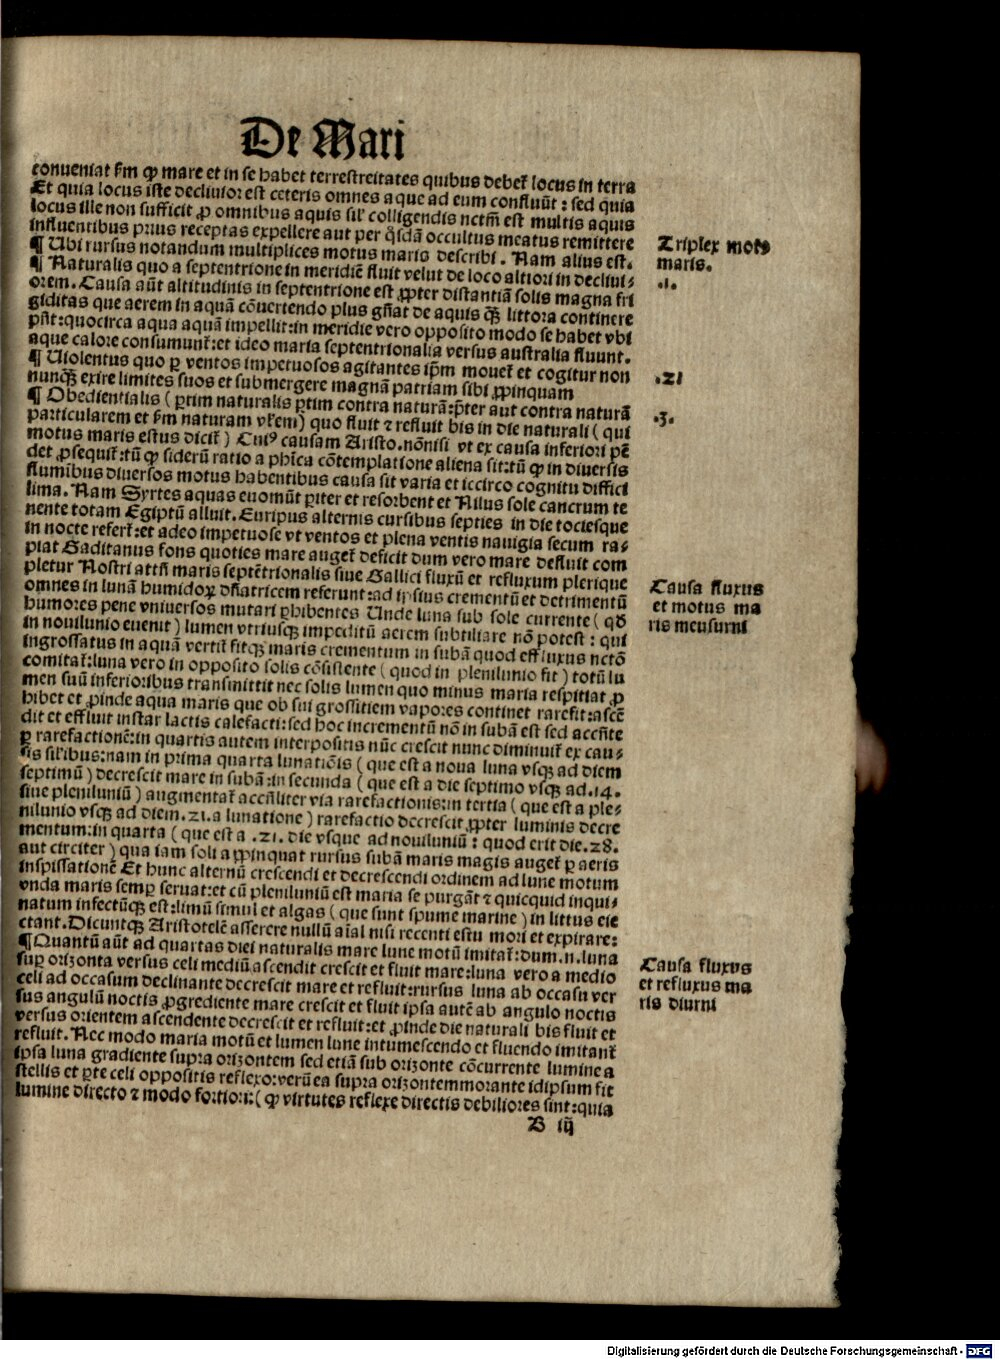 De Mari
conueniat ẜm ꝙ mare et in se habet terrestreitates quibus debet̃ locus in terra
Et quia locus iste decliuior est ceteris omnes aque ad eum confluũt : sed quia
locus ille non sufficit ꝓ omnibus aquis sil' colligendis nctm̃ est multis aquis
influentibus prius receptas expellere aut per q̊sdã occultus meatus remittere
¶ Ubi rursus notandum multiplices motus maris describi . Nam alius est.
¶ Naturalis quo a septentrione in meridiẽ fluit velut de loco altiori in decliui-
orem. Causa aũt altitudinis in septentrione est ꝓpter distantiã solis magna fri
giditas que aerem in aquã cõuertendo plus gñat de aquis q̃ꝫ littora continere
pñt:quocirca aqua aquã impellit:in meridie vero opposito modo se habet vbi
aque calore consumunt̃:et ideo maria septentrionalia versus australia fluunt.
¶ Uiolentus quo ꝑ ventos impetuosos agitantes ip̃m mouet̃ et cogitur non
nunq̃ꝫ exire limites suos et submergere magnã patriam sibi ꝓpinquam
¶ Obedientialis ( ꝑtim naturalis ꝑtim contra naturã:p̃ter aut contra naturã
particularem et ẜm naturam vl̃em ) quo fluit ⁊ refluit bis in die naturali ( qui
motus maris estus dicit̃ ) Cuiꝰ causam Aristo.nõnisi vt ex causa inferiori pẽ
det ꝓsequit̃:tũ ꝙ siderũ ratio a phĩca cõtemplatione aliena sit:tũ ꝙ in diuersis
flumibus diuersos motus habentibus causa sit varia et iccirco cognitu diffici
lima. Nam Syrtes aquas euomũt ꝑiter et resorbent et Nilus sole cancrum te
nente totam Egiptũ alluit. Euripus alternis cursibus septies in die tociesque
in nocte refert̃:et adeo impetuose vt ventos et plena ventis nauigia secum ra-
piat Gaditanus fons quoties mare auget̃ deficit dum vero mare defluit com
pletur Nostri attñ maris septẽtrionalis siue Gallici fluxũ et refluxum plerique
omnes in lunã humidoꝝ dñatricem referunt:ad ipsius crementũ et detrimentũ
humores pene vniuersos mutari ꝑhibentes Unde luna sub sole currente ( qđ
in nouilunio euenit ) lumen vtriusqꝫ impeditũ aerem subtiliare nõ potest : qui
ingrossatus in aquã vertit̃ fitqꝫ maris crementum in subã quod effluxus nctõ
comitat̃:luna vero in opposito solis cõsistente ( quod in plenilunio fit ) totũ lu
men suũ inferioribus transmittit nec solis lumen quo minus maria respiciat ꝓ
hibet et ꝓinde aqua maris que ob sui grossitiem vapores continet rarefit:ascẽ
dit et effluit instar lactis calefacti:sed hoc incrementũ nõ in subã est sed accñte
ꝑ rarefactionẽ:in quartis autem interpositis nũc crescit nunc diminuit̃ ex cau-
sis sil'ibus:nam in prima quarta lunatiõis ( que est a noua luna vsqꝫ ad diem
septimũ ) decrescit mare in subã:in secunda ( que est a die septimo vsqꝫ ad.14.
siue pleniluniũ ) augmentat̃ accñliter via rarefactionis:in tertia ( que est a ple-
nilunio vsqꝫ ad diem.21.a lunatione ) rarefactio decrescit ꝓpter luminis decre
mentum:in quarta ( que est a .21. die vsque ad nouiluniũ : quod erit die.28.
aut circiter ) qua iam soli appinquat rursus subã maris magis auget̃ ꝑ aeris
inspissationẽ Et hunc alternũ crescendi et decrescendi ordinem ad lune motum
vnda maris semꝑ seruat:et cũ pleniluniũ est maria se purgãt ⁊ quicquid inqui-
natum infectũqꝫ est:limũ simul et algas ( que sunt spume marine ) in littus eie
ctant. Dicuntqꝫ Aristotelẽ asserere nullũ aĩal nisi recenti estu mori et expirare:
¶ Quantũ aũt ad quartas diei naturalis mare lune motũ imitat̃:dum.n.luna
suꝑ orizonta versus celi mediũ ascendit crescit et fluit mare:luna vero a medio
celi ad occasum declinante decrescit mare et refluit:rursus luna ab occasu ver
sus angulũ noctis ꝓgrediente mare crescit et fluit ipsa autẽ ab angulo noctis
versus orientem ascendente decrescit et refluit:et ꝓinde die naturali bis fluit et
refluit. Nec modo maria motũ et lumen lune intumescendo et fluendo imitant̃
ipsa luna gradiente supra orizontem sed etiã sub orizonte cõcurrente lumine a
stellis et ꝑte celi oppositis reflexo:verũ ea supra orizontem morante idipsum fit
lumine directo ⁊ modo fortiori:( ꝙ virtutes reflexe directis debiliores sint:quia
B iij
Triplex motꝰ
maris.
.1.
.21
.3.
Causa fluxus
et motus ma
ris mensurni
Causa fluxus
et refluxus ma
ris diurni
Digitalisierung gefördert durch die Deutsche Forschungsgemeinschaft - DFG